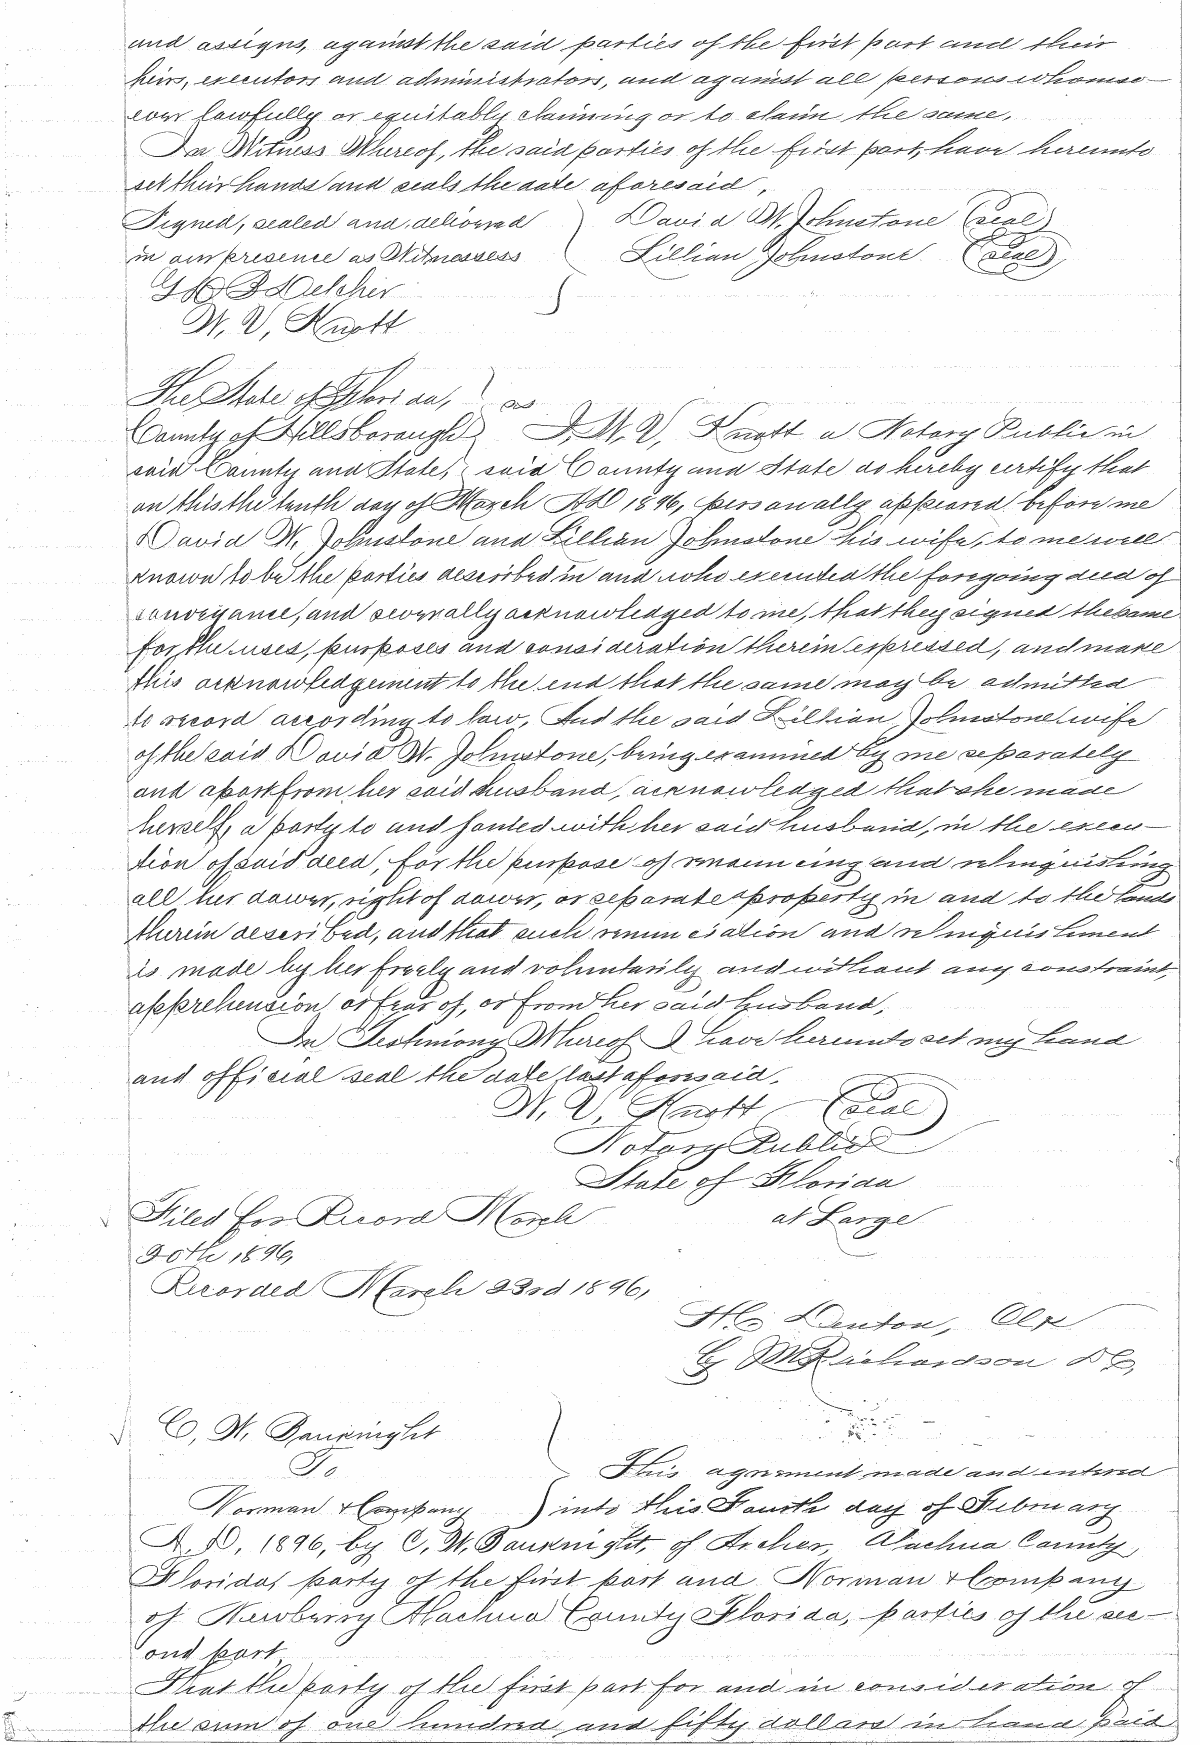 and assigns, against the said parties of the first part and their
heirs, executors and administrators, and against all persons whomso-
ever lawfully or equitably claiming or to claim the same.
In Witness Whereof, the said parties of the first part, have hereunto
set their hands and seals the date aforesaid.
Signed, sealed and delivered ) David W. Johnstone (Seal)
in our presence as Witnessess ( Lillian Johnstone (Seal)
Belcher
W. V, Knott
The State of Florida, ) ss
County of Hillsborough ) I, W. V, Knott a Notary Public in
said County and State, said County and State do hereby certify that
on this the tenth day of March AD 1896, personally appeared before me
David W. Johnstone and Lillian Johnstone his wife, to me well
known to be the parties described in and who executed the foregoing deed of
conveyance, and severally acknowledged to me, that they signed the same
for the uses, purposes and consideration therein expressed, and make
this acknowledgement to the end that the same may be admitted
to record according to law, And the said Lillian Johnstone wife
of the said David W. Johnstone, being examined by me separately
and apart from her said husband, acknowledged that she made
herself, a party to and with her said husband, in the execu-
tion of said deed, for the purpose of renouncing and relinquishing
all her dower, right of dower, or separate property in and to the lands
therein described, and that such renunciation and relinquishment
is made by her freely and voluntarily and without any constraint,
apprehension or fear of, or from her said husband,
In Testimony Whereof I have hereunto set my hand
and official seal the date last aforesaid.
W. V, Knott (Seal)
Notary Public
State of Florida
Filed for Record March at Large
20th 1896,
Recorded March 23rd 1896,
Denton, Clk
Richardson DC,
C, W, Bauknight )
To This agreement made and entered
Norman & Company ) into this Fourth day of February
A. D, 1896, by C, W, Bauknight, of Archer, Alachua County
Florida, party of the first part and Norman & Company
of Newberry Alachua County Florida, parties of the sec-
ond part
That the party of the first part for and in consideration of
the sum of one hundred and fifty dollars in hand paid